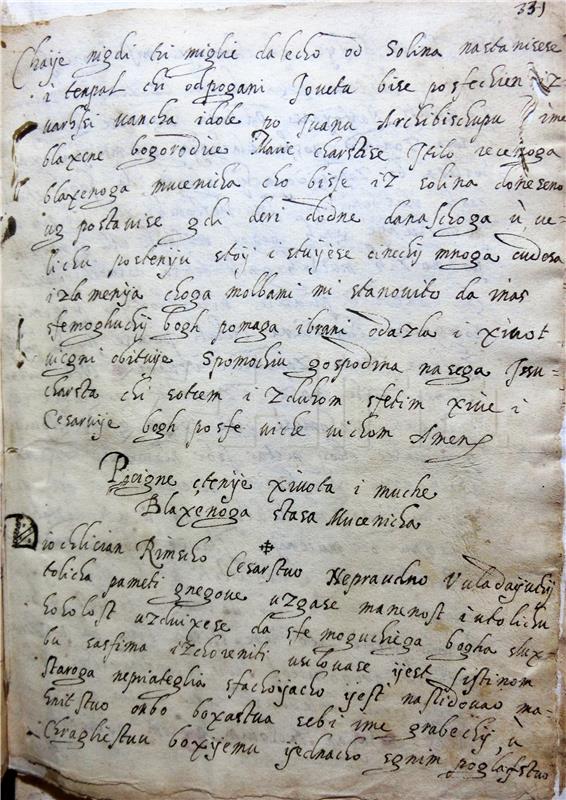 331
Chaije nigdi tri miglie dalecho od Solina nastanisese
i tempal chi odpogani Joveta bise posfechien iz
varhsi vancha idole po Ivanu Archibischupu u ime
blaxene bogorodice Marie charstise I tilo recenoga
blaxenoga mucenicha cho bisse iz Solina doneseno
ug postavise gdi deri dodne danaschoga u ve=
lichu postenju stoj i stujese cinechij mnoga cudesa
i zlamenija choga molbami mi stanovito da inas
sfemoghuchij bogh pomaga i brani odazla i xivot
vicgni obituje Spomochiu gospodina nasega Jesu=
charsta chi sotcem i zduhom sfetim xive i
Cesaruje bogh po sfe viche vichom Amen
Pocigne ctenije xivota i muche
Blaxenoga stasa Mucenicha
Dio chlician Rimscho Cesarstvo Nepraudno Vuladajuchij
tolicha pameti gnegove uzgase mamnost i utolichu
hoholost uzdvixese da sfe moguchiega bogha slux=
bu sasfima izchoreniti usilovase ijest Sistinom
staroga nepriateglia sfachoijacho ijest naslidovao na=
enitstvo onbo boxastva sebi ime grabechij, u
Chragliestvu boxijemu ijednacho ognim poglafstvo